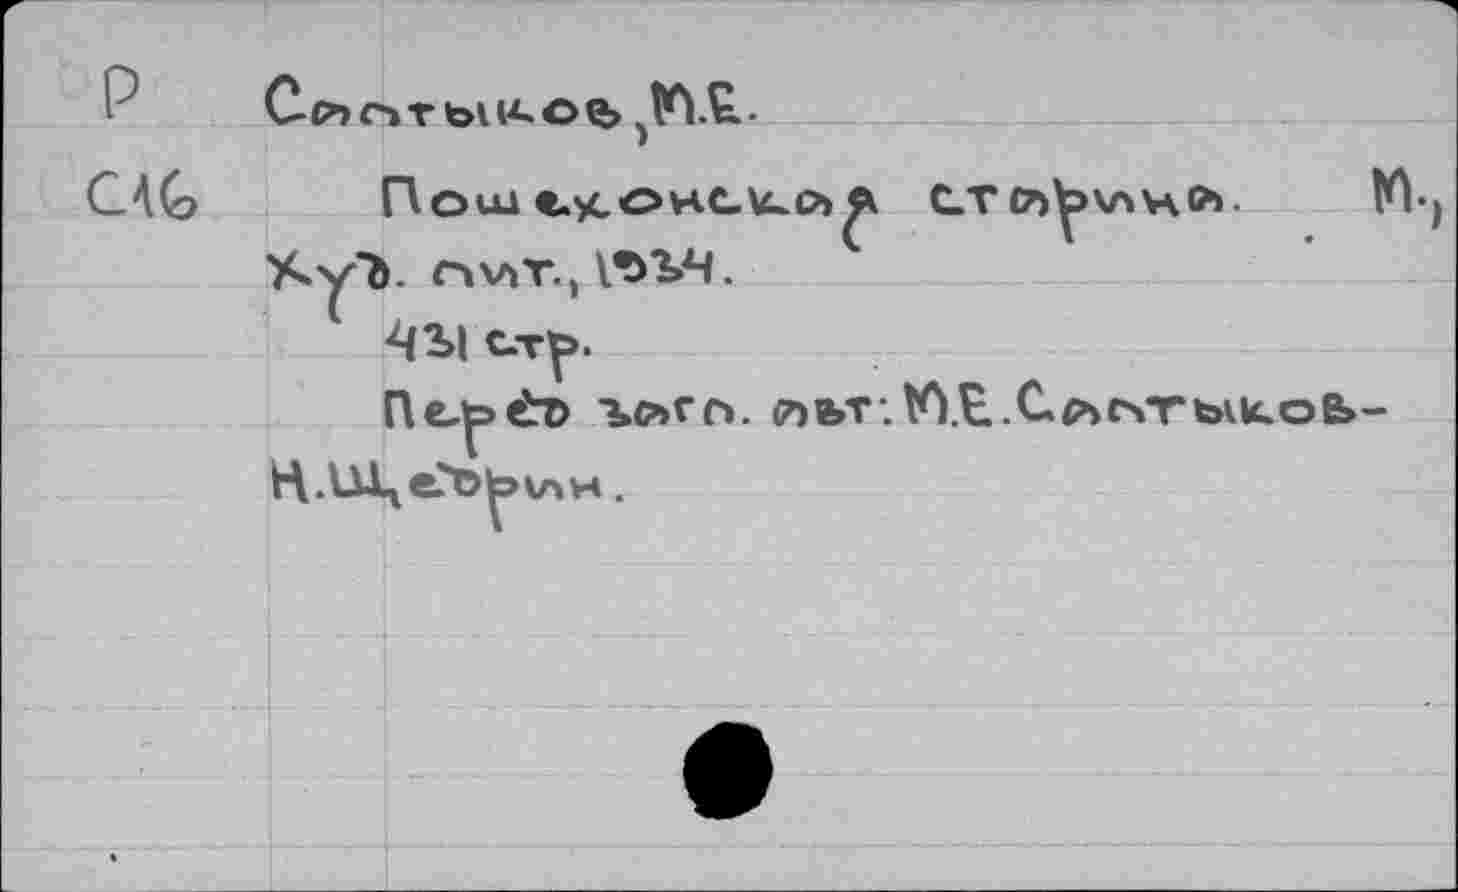 Р Салтыков, М.Е.
С16 Пошехонская старина. М.,
Худ. лит., 1934.
431 стр.
Перед загл. авт: М.Е.Салтыков-
Н.Щедрин.